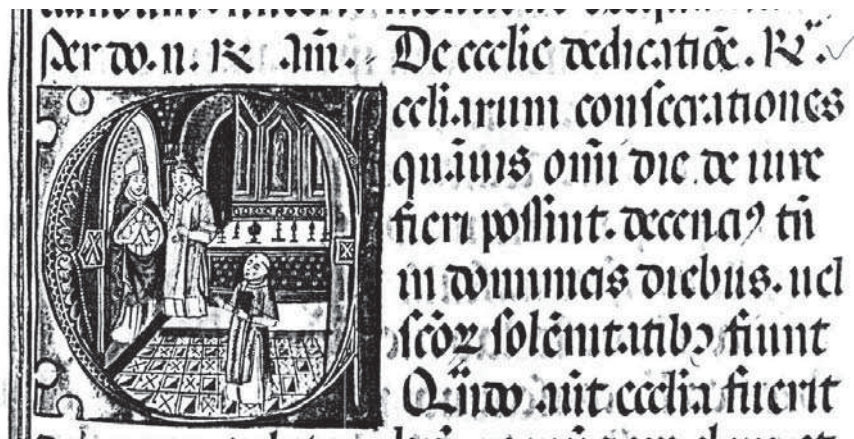 ser do. n. R̃ Am̃. De ecclie dedicatiōe. Rᵃ.
eccliarum consecrationes
quāuis om̃i die de iure
fieri possint. decenciꝰ tñ
in dominicis diebus. uel
scōꝝ solēnitatibꝫ fiunt
Qñdo aũt ecclia fuerit